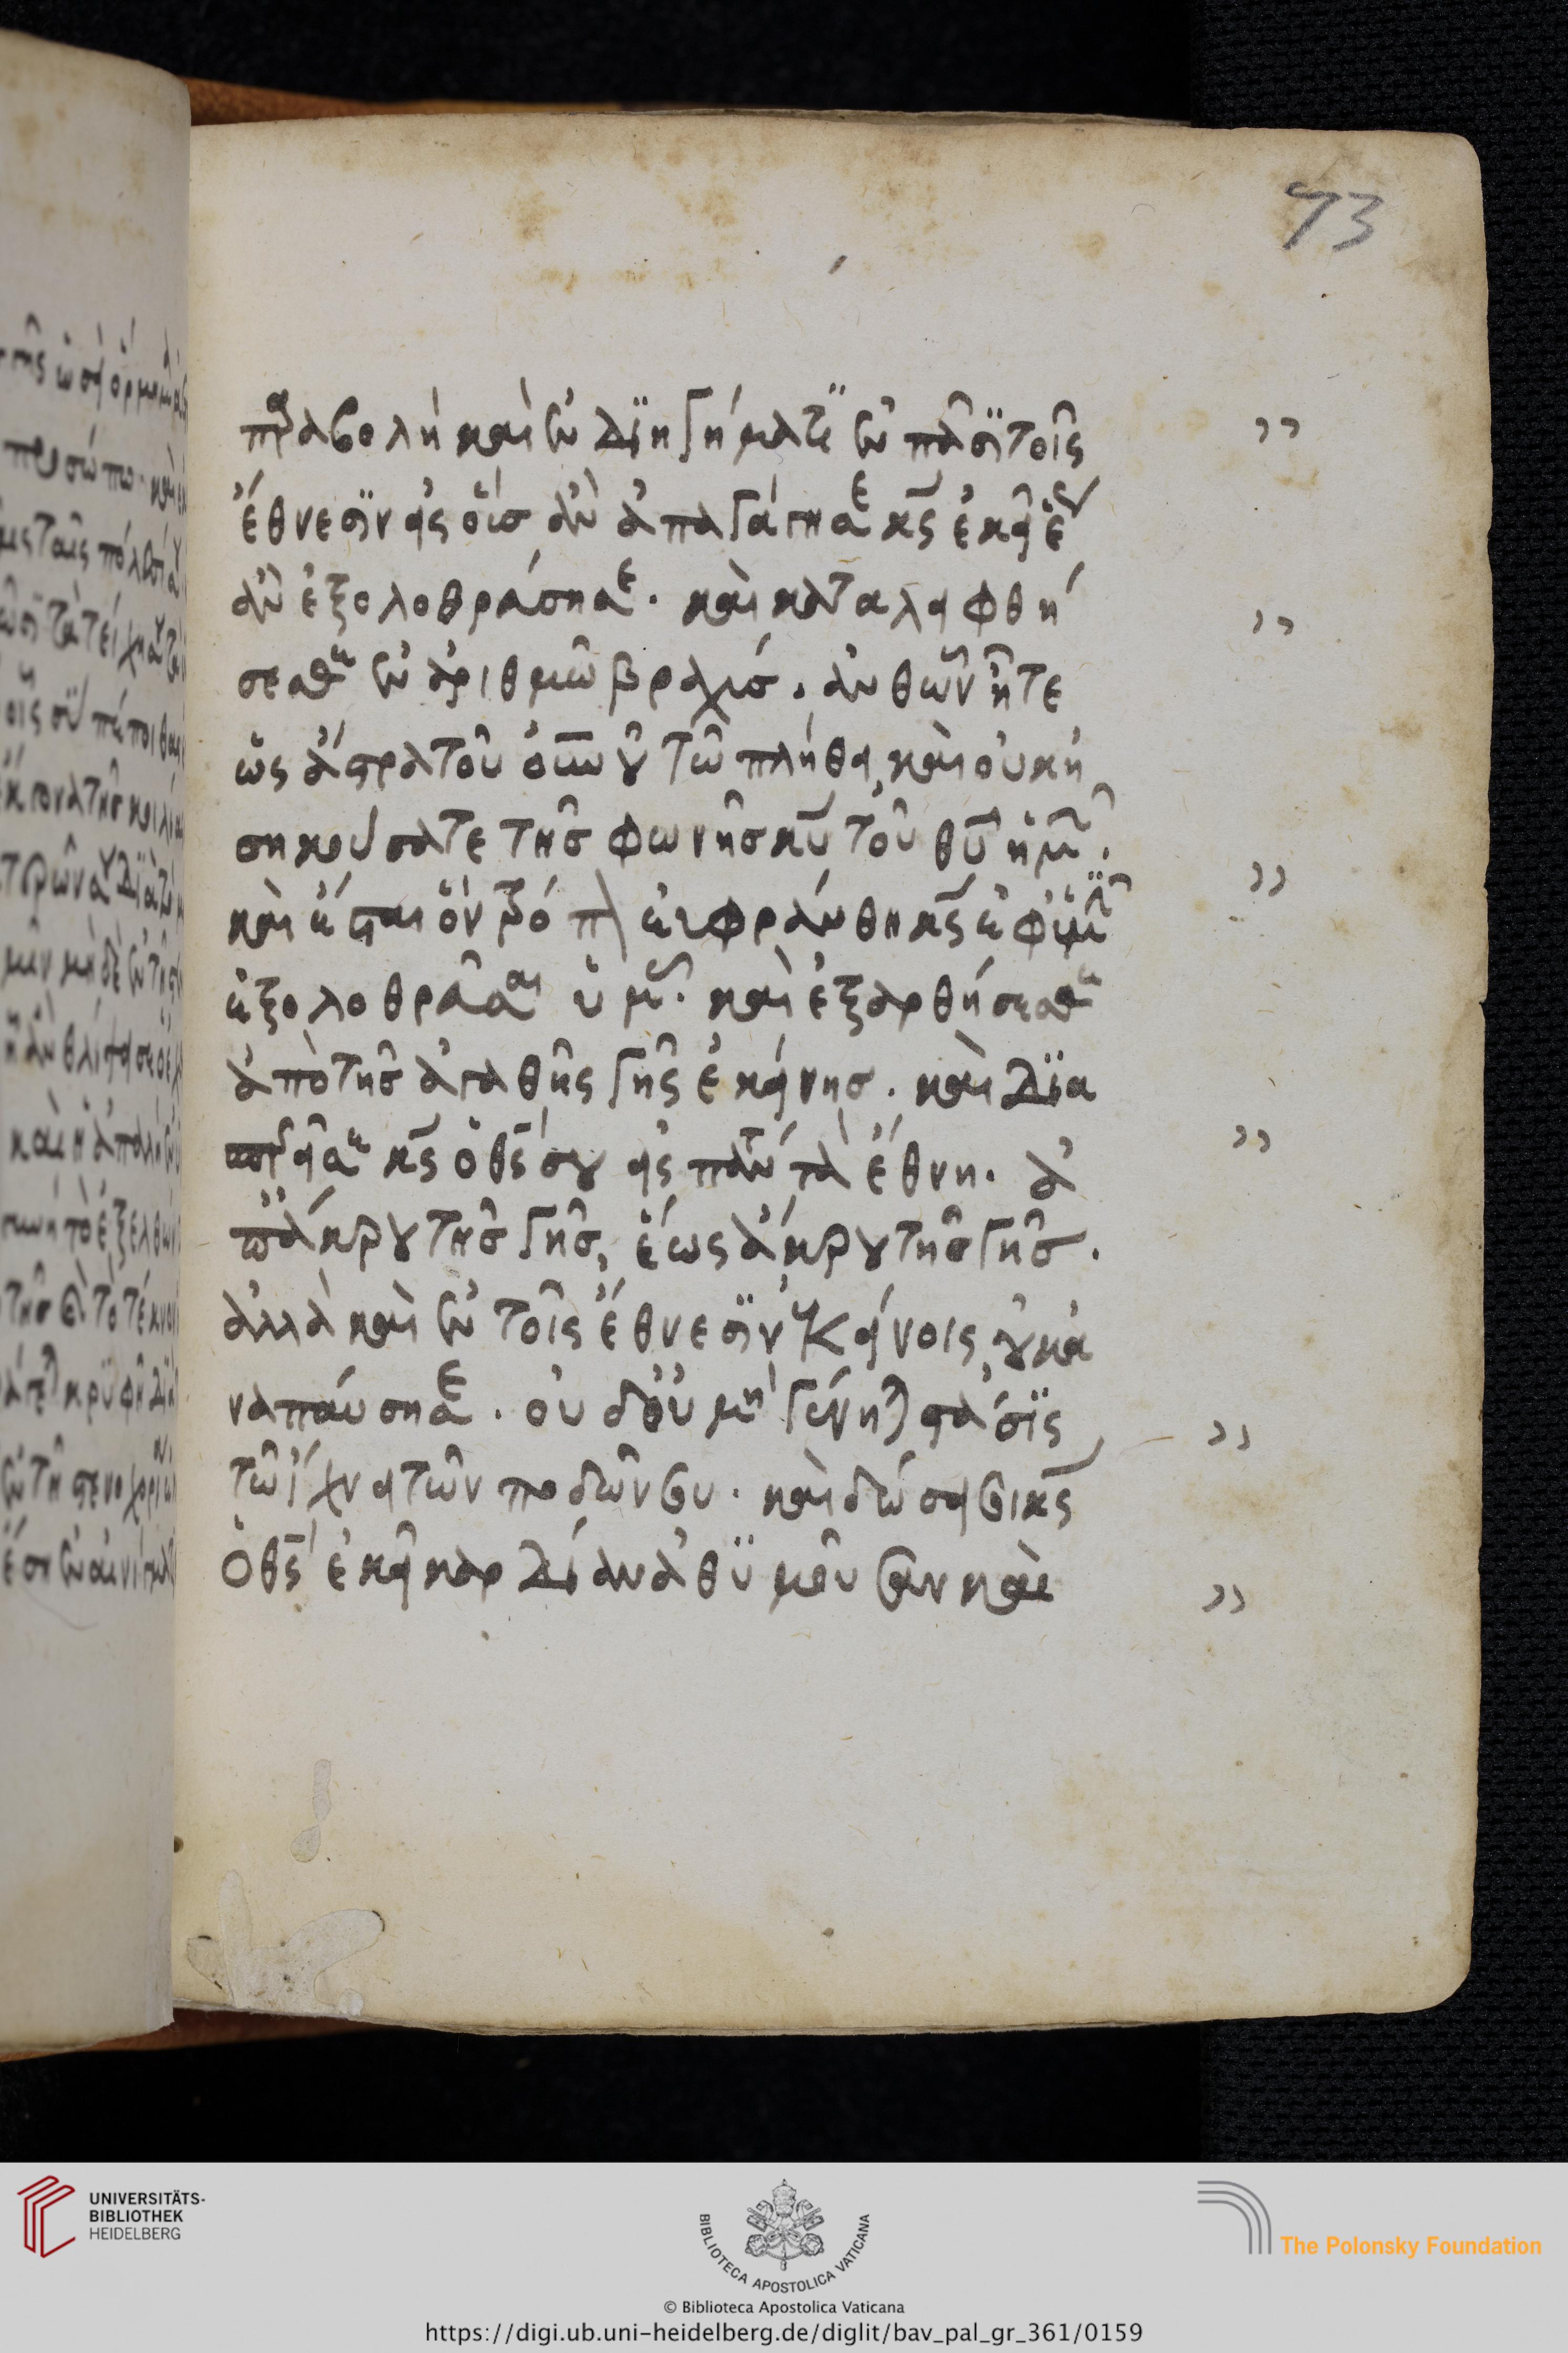 73
παραβολῆ καὶ ἐν διηγήματι ἐν πᾶσι τοῖς
ἔθνεσιν εἰς οὓς ἂν ἀπαγάγη σε κς ἐκεῖ ἐ
ἂν ἐξολοθρεύση σε. καὶ καταλειφθή
σεσθε ἐν ἀριθμῶ βραχεῖ. ἀνθῶν ἦτε
ὡς ἄστρα τοῦ οὐνοῦ τῶ πλήθει, καὶ οὐκ εἰ
σηκούσατε τῆς φωνῆς κυ τοῦ θυ ἡμῶν.
καὶ ἔσται ὃν τρόπον εὐφράνθη κς ἐφ' ὑμῖν
ἐξολοθρεῦσαι ὑμᾶς. καὶ ἐξαρθήσεσθε
ἀπὸ τῆς ἀγαθῆς γῆς ἐκείνης. καὶ δια
σπερεῖ σε κς ὁ θς σου εἰς πάντα τὰ ἔθνη. ἀ
π' ἄκρου τῆς γῆς, ἕως ἄκρου τῆς γῆς.
ἀλλὰ καὶ ἐν τοῖς ἔθνεσιν ἐκείνοις, οὐκ ἀ
ναπαύση σε. οὐδ' οὐ μὴ γένηται στάσις
τῶ ἴχνει τῶν ποδῶν σου. καὶ δώσει σοι κς
ὁ θς ἐκεῖ καρδίαν ἀθυμοῦσαν καὶ
UNIVERSITÄTS-
BIBLIOTHEK
HEIDELBERG
BIBLIOTECA APOSTOLICA VATICANA
The Polonsky Foundation
© Biblioteca Apostolica Vaticana
https://digi.ub.uni-heidelberg.de/diglit/bav_pal_gr_361/0159